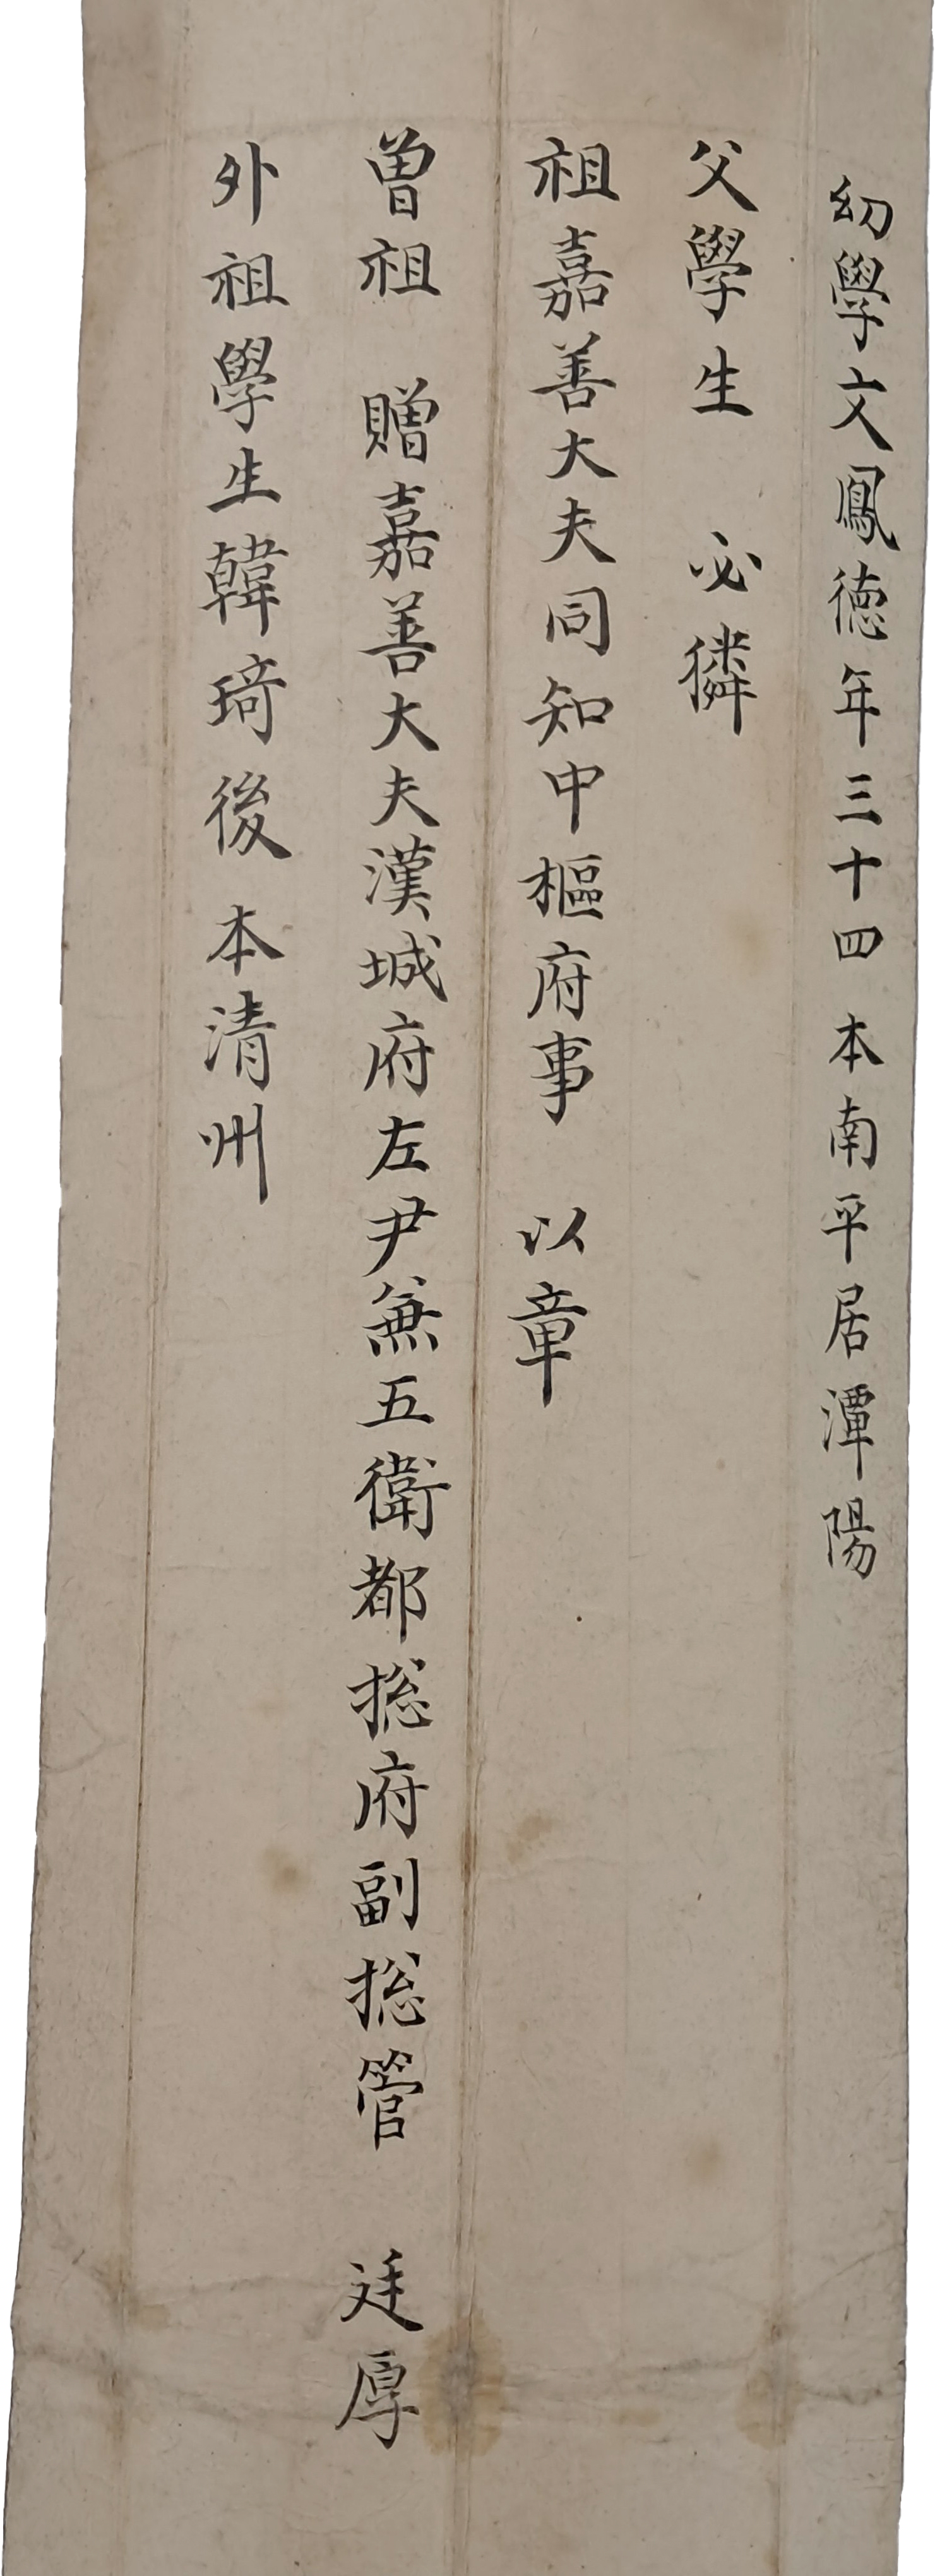 幼學文鳳德年三十四 本南平居潭陽
父學生 必獜
祖嘉善大夫同知中樞府事 以章
曽祖 贈嘉善大夫漢城府左尹兼五衛都摠府副摠管 廷厚
外祖學生韓琦後 本清州